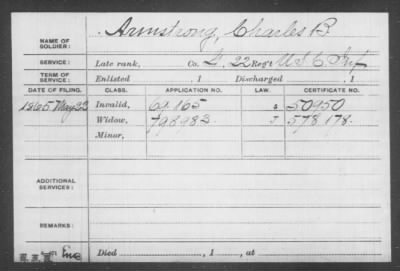 NAME OF SOLDIER: Armstrong, Charles B.
SERVICE: Late rank, Co. G, 22 Reg't U S C Inf
TERM OF SERVICE: Enlisted , 1 Discharged , 1
DATE OF FILING. CLASS. APPLICATION NO. LAW. CERTIFICATE NO.
1865 May 22 Invalid, 69.165 50950
Widow, 798983 578.178.
Minor,
ADDITIONAL SERVICES:
REMARKS:
Died , 1 , at